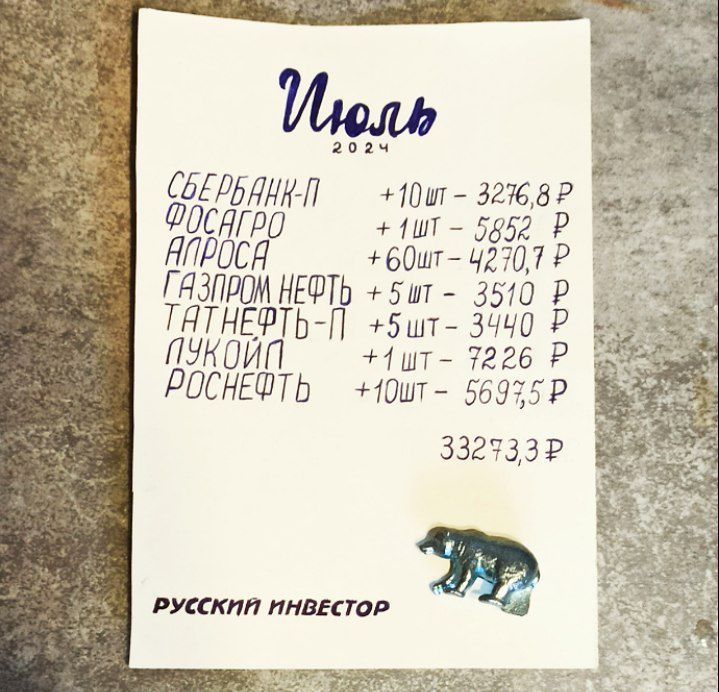 Июль
2024
СБЕРБАНК-П +10шт – 3276,8 ₽
ФОСАГРО +1шт – 5852 ₽
АЛРОСА +60шт – 4270,7 ₽
ГАЗПРОМ НЕФТЬ +5шт – 3510 ₽
ТАТНЕФТЬ-П +5шт – 3440 ₽
ЛУКОЙЛ +1шт – 7226 ₽
РОСНЕФТЬ +10шт – 5697,5 ₽
33273,3 ₽
РУССКИЙ ИНВЕСТОР